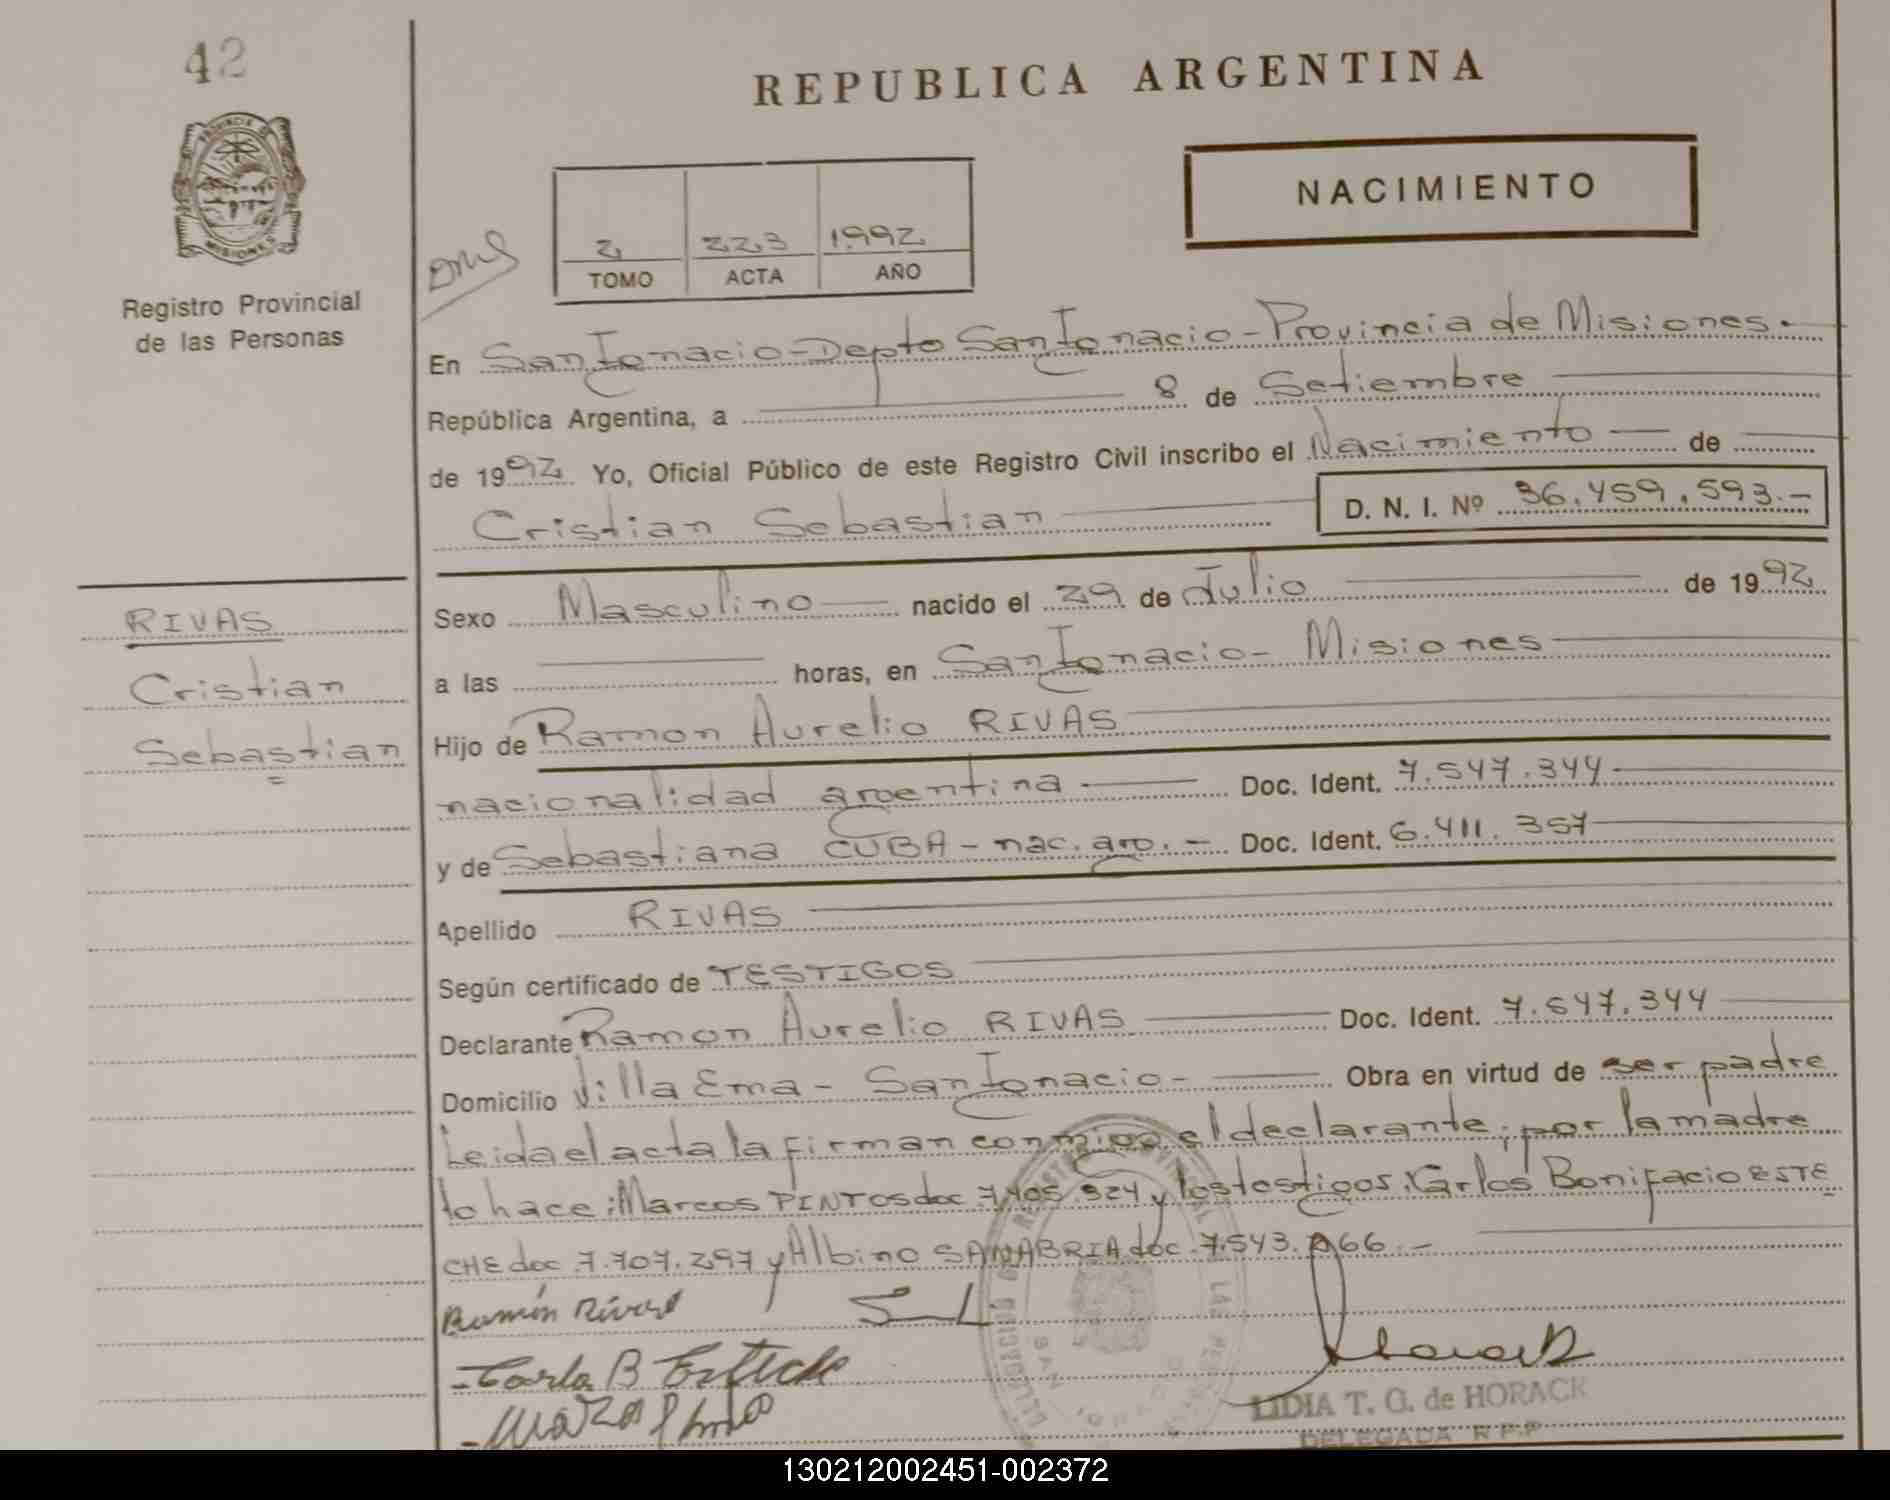 42
REPUBLICA ARGENTINA
NACIMIENTO
2 223 1992
TOMO ACTA AÑO
PROVINCIA DE
MISIONES
Registro Provincial
de las Personas
En San Ignacio - Depto San Ignacio - Provincia de Misiones.
República Argentina, a 8 de Setiembre
de 1992 Yo, Oficial Público de este Registro Civil inscribo el Nacimiento de
Cristian Sebastian D. N. I. Nº 36.459.593.-
RIVAS
Cristian
Sebastian
Sexo Masculino nacido el 29 de Julio de 1992
a las horas, en San Ignacio - Misiones
Hijo de Ramon Aurelio RIVAS
nacionalidad argentina Doc. Ident. 7.547.344
y de Sebastiana CUBA - nac. arg. - Doc. Ident. 6.411.357
Apellido RIVAS
Según certificado de TESTIGOS
Declarante Ramon Aurelio RIVAS Doc. Ident. 7.547.344
Domicilio Villa Ema - San Ignacio - Obra en virtud de ser padre
Leida el acta la firman conmigo el declarante; por la madre
lo hace: Marcos PINTOS doc. 7.405.324 y los testigos: Carlos Bonifacio ESTE
CHE doc. 7.707.297 y Albino SANABRIA doc. 7.543.066.-
Ramón Rivas
LIDIA T. G. de HORACK
DELEGADA R.P.P
130212002451-002372